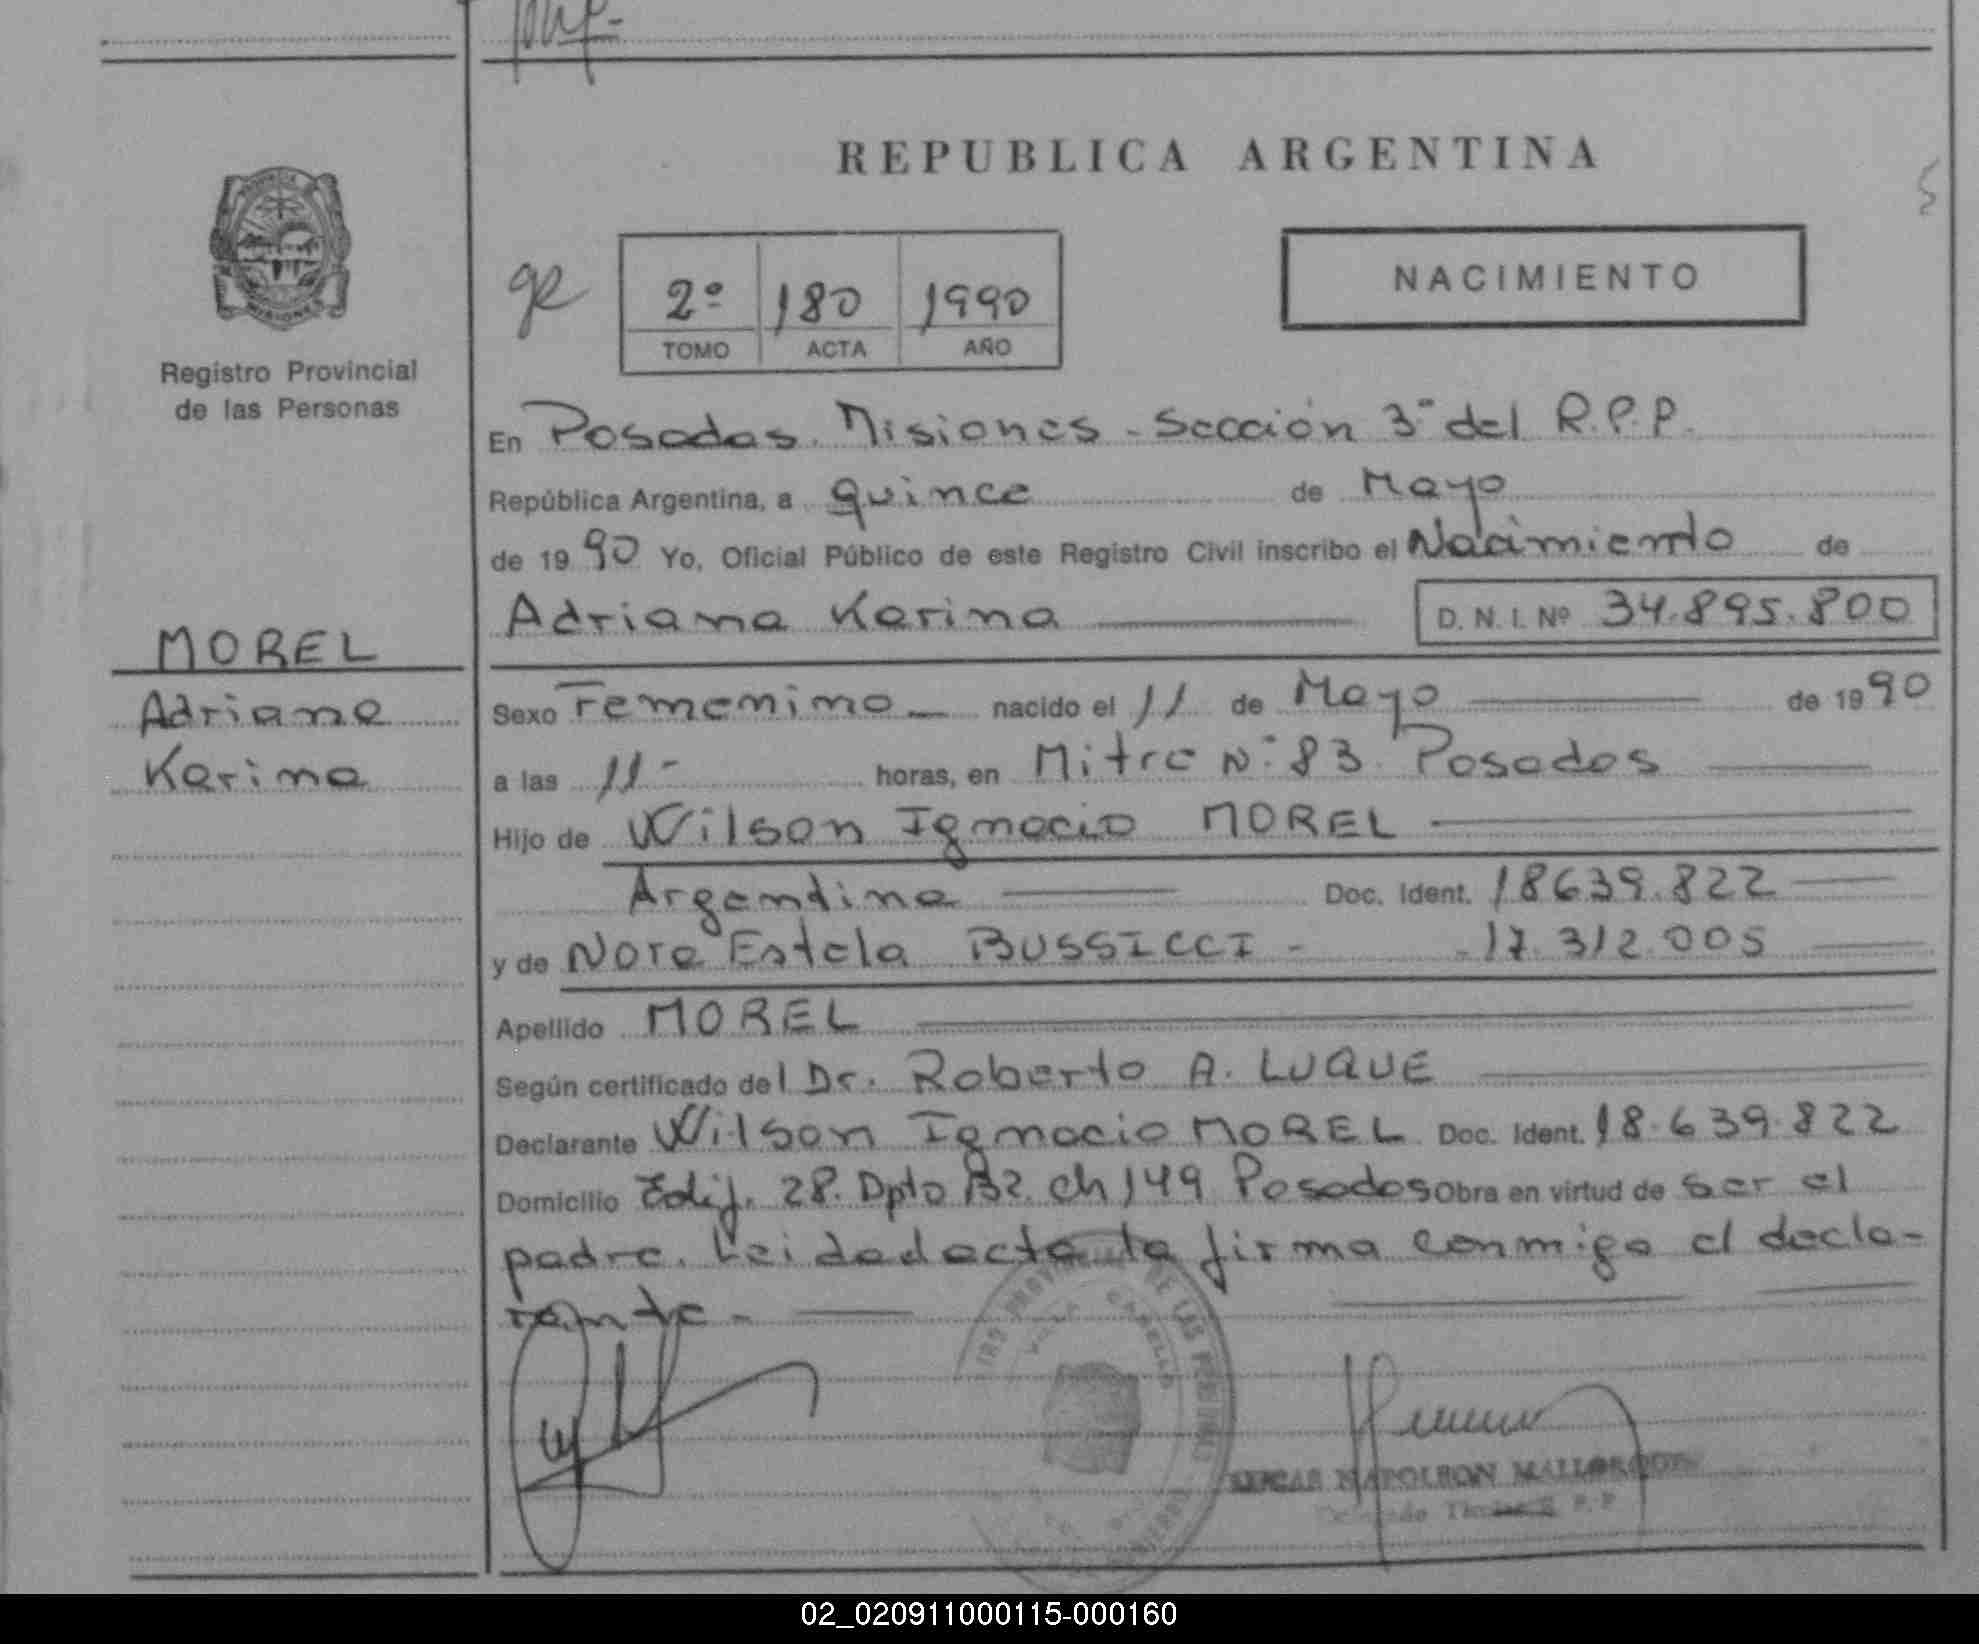 REPUBLICA ARGENTINA
NACIMIENTO
2º 180 1990
TOMO ACTA AÑO
Registro Provincial
de las Personas
En Posadas. Misiones - Sección 3º del R.P.P.
República Argentina, a quince de Mayo
de 1990 Yo, Oficial Público de este Registro Civil inscribo el Nacimiento de
Adriana Karina D. N. I. Nº 34.895.800
MOREL
Adriana
Karina
Sexo Femenino nacido el 11 de Mayo de 1990
a las 11- horas, en Mitre Nº 83 Posadas
Hijo de Wilson Ignacio MOREL
Argentina Doc. Ident. 18639.822
y de Nora Estela BUSSICCI - 17.312.005
Apellido MOREL
Según certificado del Dr. Roberto A. LUQUE
Declarante Wilson Ignacio MOREL Doc. Ident. 18.639.822
Domicilio Edif. 28. Dpto B2. ch 149 Posadas Obra en virtud de ser el
padre. Leida el acta la firma conmigo el decla-
rante -
VILLA CABELLO
NAPOLEON
02_020911000115-000160